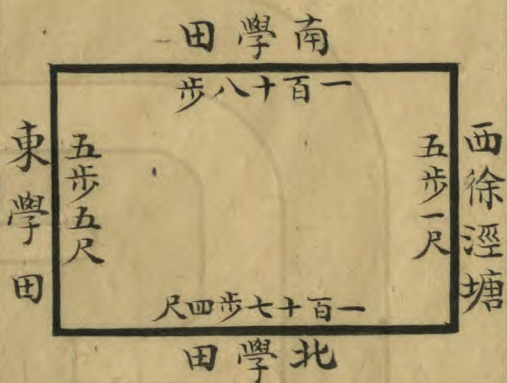 南學田
一百十八步
西徐涇塘
五步一尺
五步五尺
東學田
一百十七步四尺
北學田